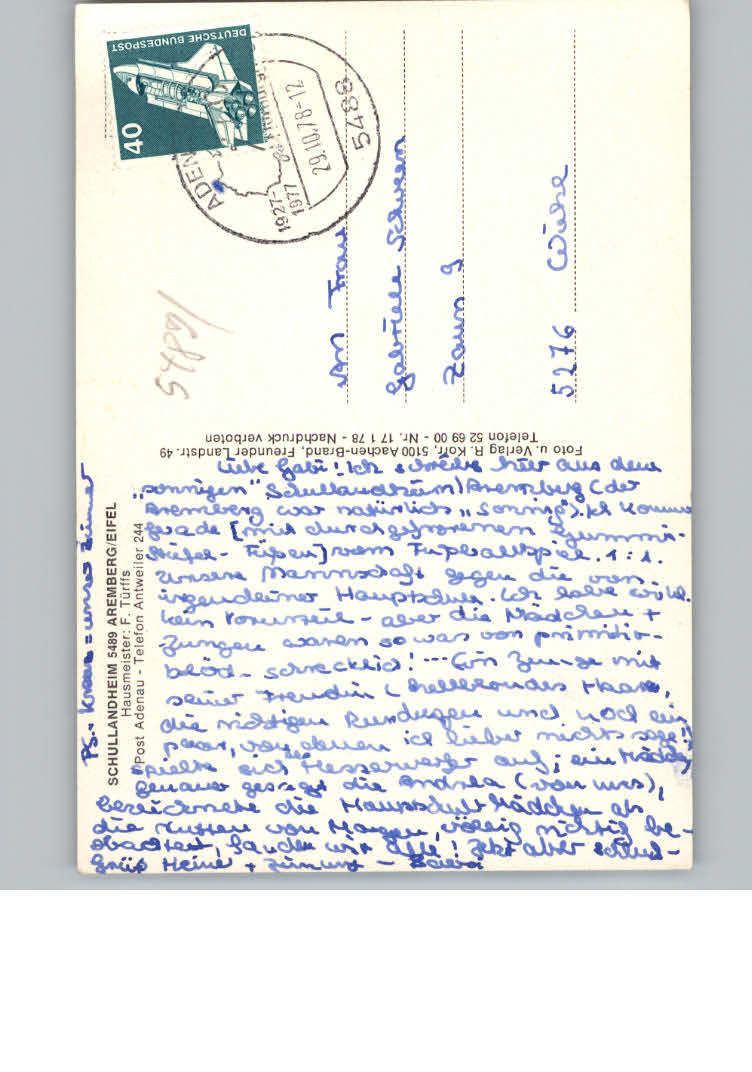 DEUTSCHE BUNDESPOST
40
ADEN
5488
29.10.78-12
1927-
1977
An Frau
Gabriele
Zaun 9
5276 Wiehl
Foto u. Verlag R. Korr, 5100 Aachen-Brand, Freunder Landstr. 49
Telefon 52 69 00 - Nr. 17 1 78 - Nachdruck verboten
SCHULLANDHEIM 5489 AREMBERG/EIFEL
Hausmeister: F. Türffs
Post Adenau - Telefon Antweiler 244
PS.: Kreuz = unser Zimmer
Liebe Gabi! Ich schreibe hier aus dem
"sonnigen" Schullandheim Aremberg (der
Aremberg war natürlich "sonnig"). Ich komme
gerade [mit durchgefrorenen Gummi-
stiefel-Füßen] vom Fußballspiel. 1:1.
Unsere Mannschaft gegen die von
irgendeiner Hauptschule. Ich habe wirkl.
kein Vorurteil - aber die Mädchen +
Jungen waren so was von primitiv-
blöd - schrecklich! --- Ein Junge mit
seiner Freundin (hellblondes Haar,
die richtigen und noch ein
paar, von denen ich lieber nichts sage!!)
spielte sich als Messerwerfer auf; ein Mädchen
genauer gesagt die Andrea (von uns),
bezeichnete die Hauptschul Mädchen als
die von völlig richtig be-
obachtet, fanden wir alle! Jetzt aber schluß-
Grüß Heiner +